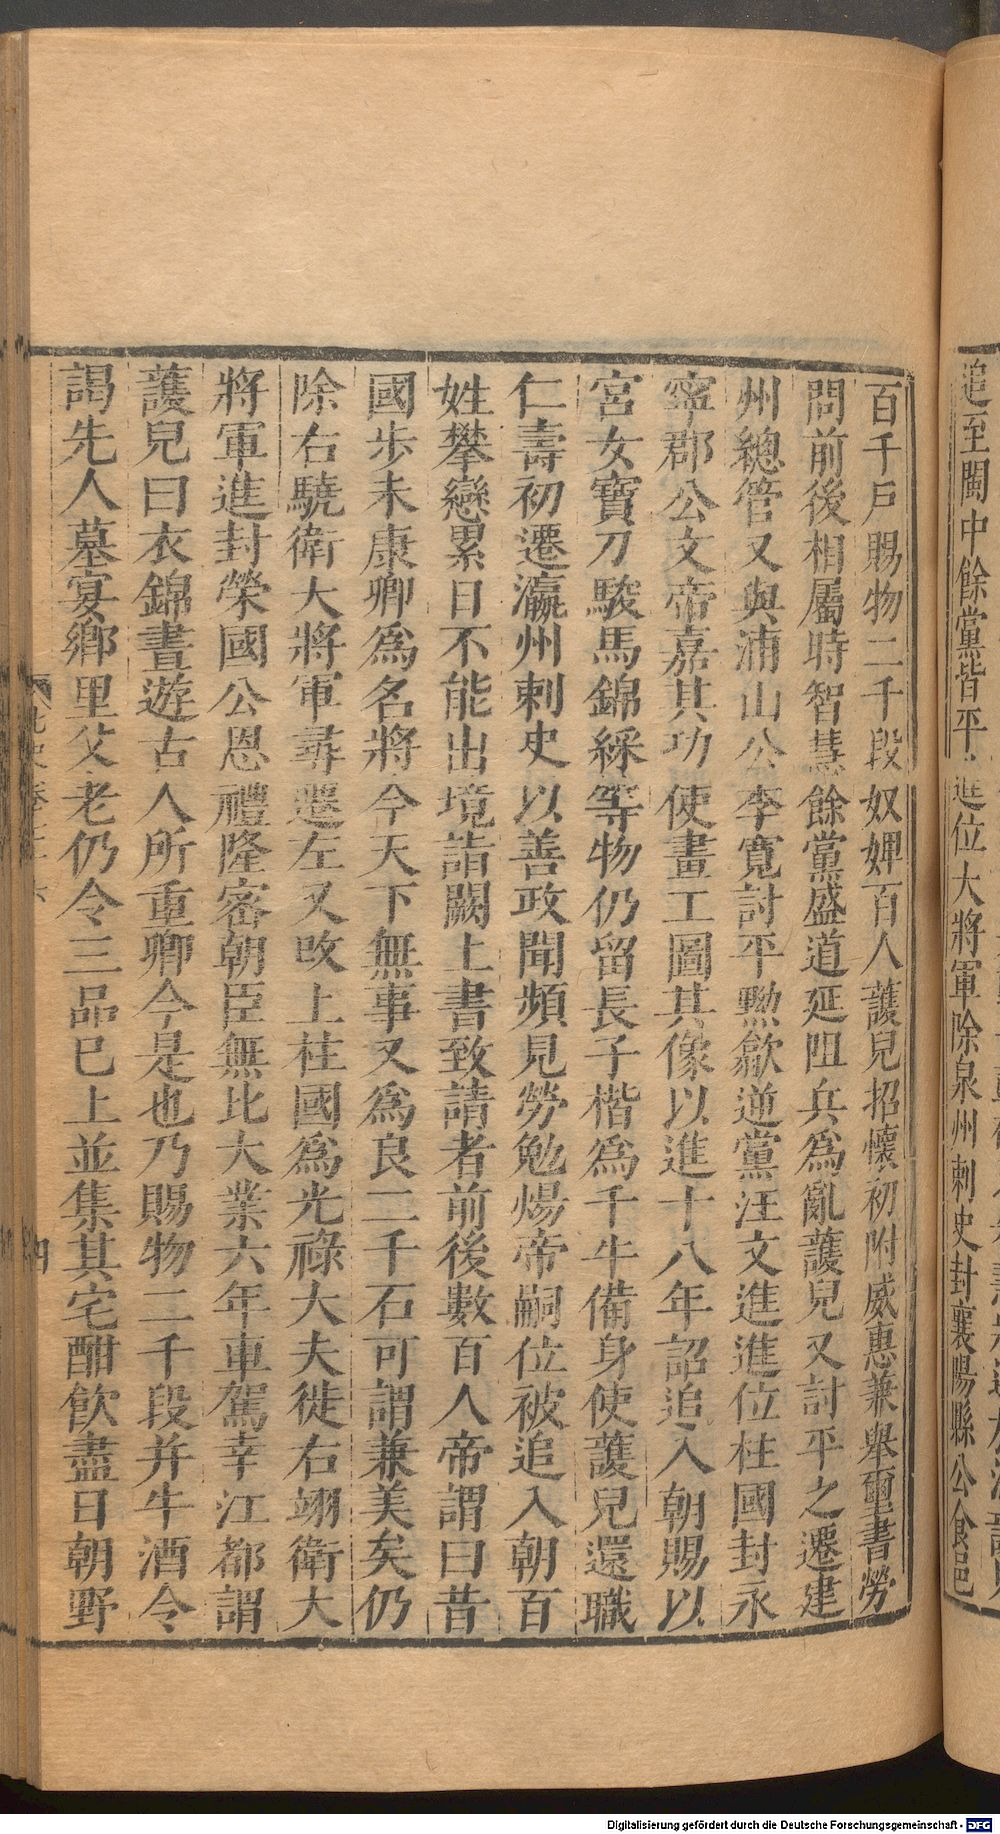 追至閩中餘黨皆平進位大將軍除泉州刺史封襄陽縣公食邑
百千戶賜物二千段奴婢百人護兒招懷初附威惠兼舉璽書勞
問前後相屬時智慧餘黨盛道延阻兵爲亂護兒又討平之遷建
州總管又與浦山公李寬討平黟歙逆黨汪文進進位柱國封永
寧郡公文帝嘉其功使畫工圖其像以進十八年詔追入朝賜以
宮女寶刀駿馬錦綵等物仍留長子楷爲千牛備身使護兒還職
仁壽初遷瀛州剌史以善政聞頻見勞勉煬帝嗣位被追入朝百
姓攀戀累日不能出境詣闕上書致請者前後數百人帝謂曰昔
國步未康卿爲名將今天下無事又爲良二千石可謂兼美矣仍
除右驍衛大將軍尋遷左又改上柱國爲光祿大夫徙右翊衛大
將軍進封榮國公恩禮隆密朝臣無比大業六年車駕幸江都謂
護兒曰衣錦晝遊古人所重卿今是也乃賜物二千段并牛酒令
謁先人墓宴鄉里父老仍令三品已上並集其宅酣飲盡日朝野
Digitalisierung gefördert durch die Deutsche Forschungsgemeinschaft - DFG